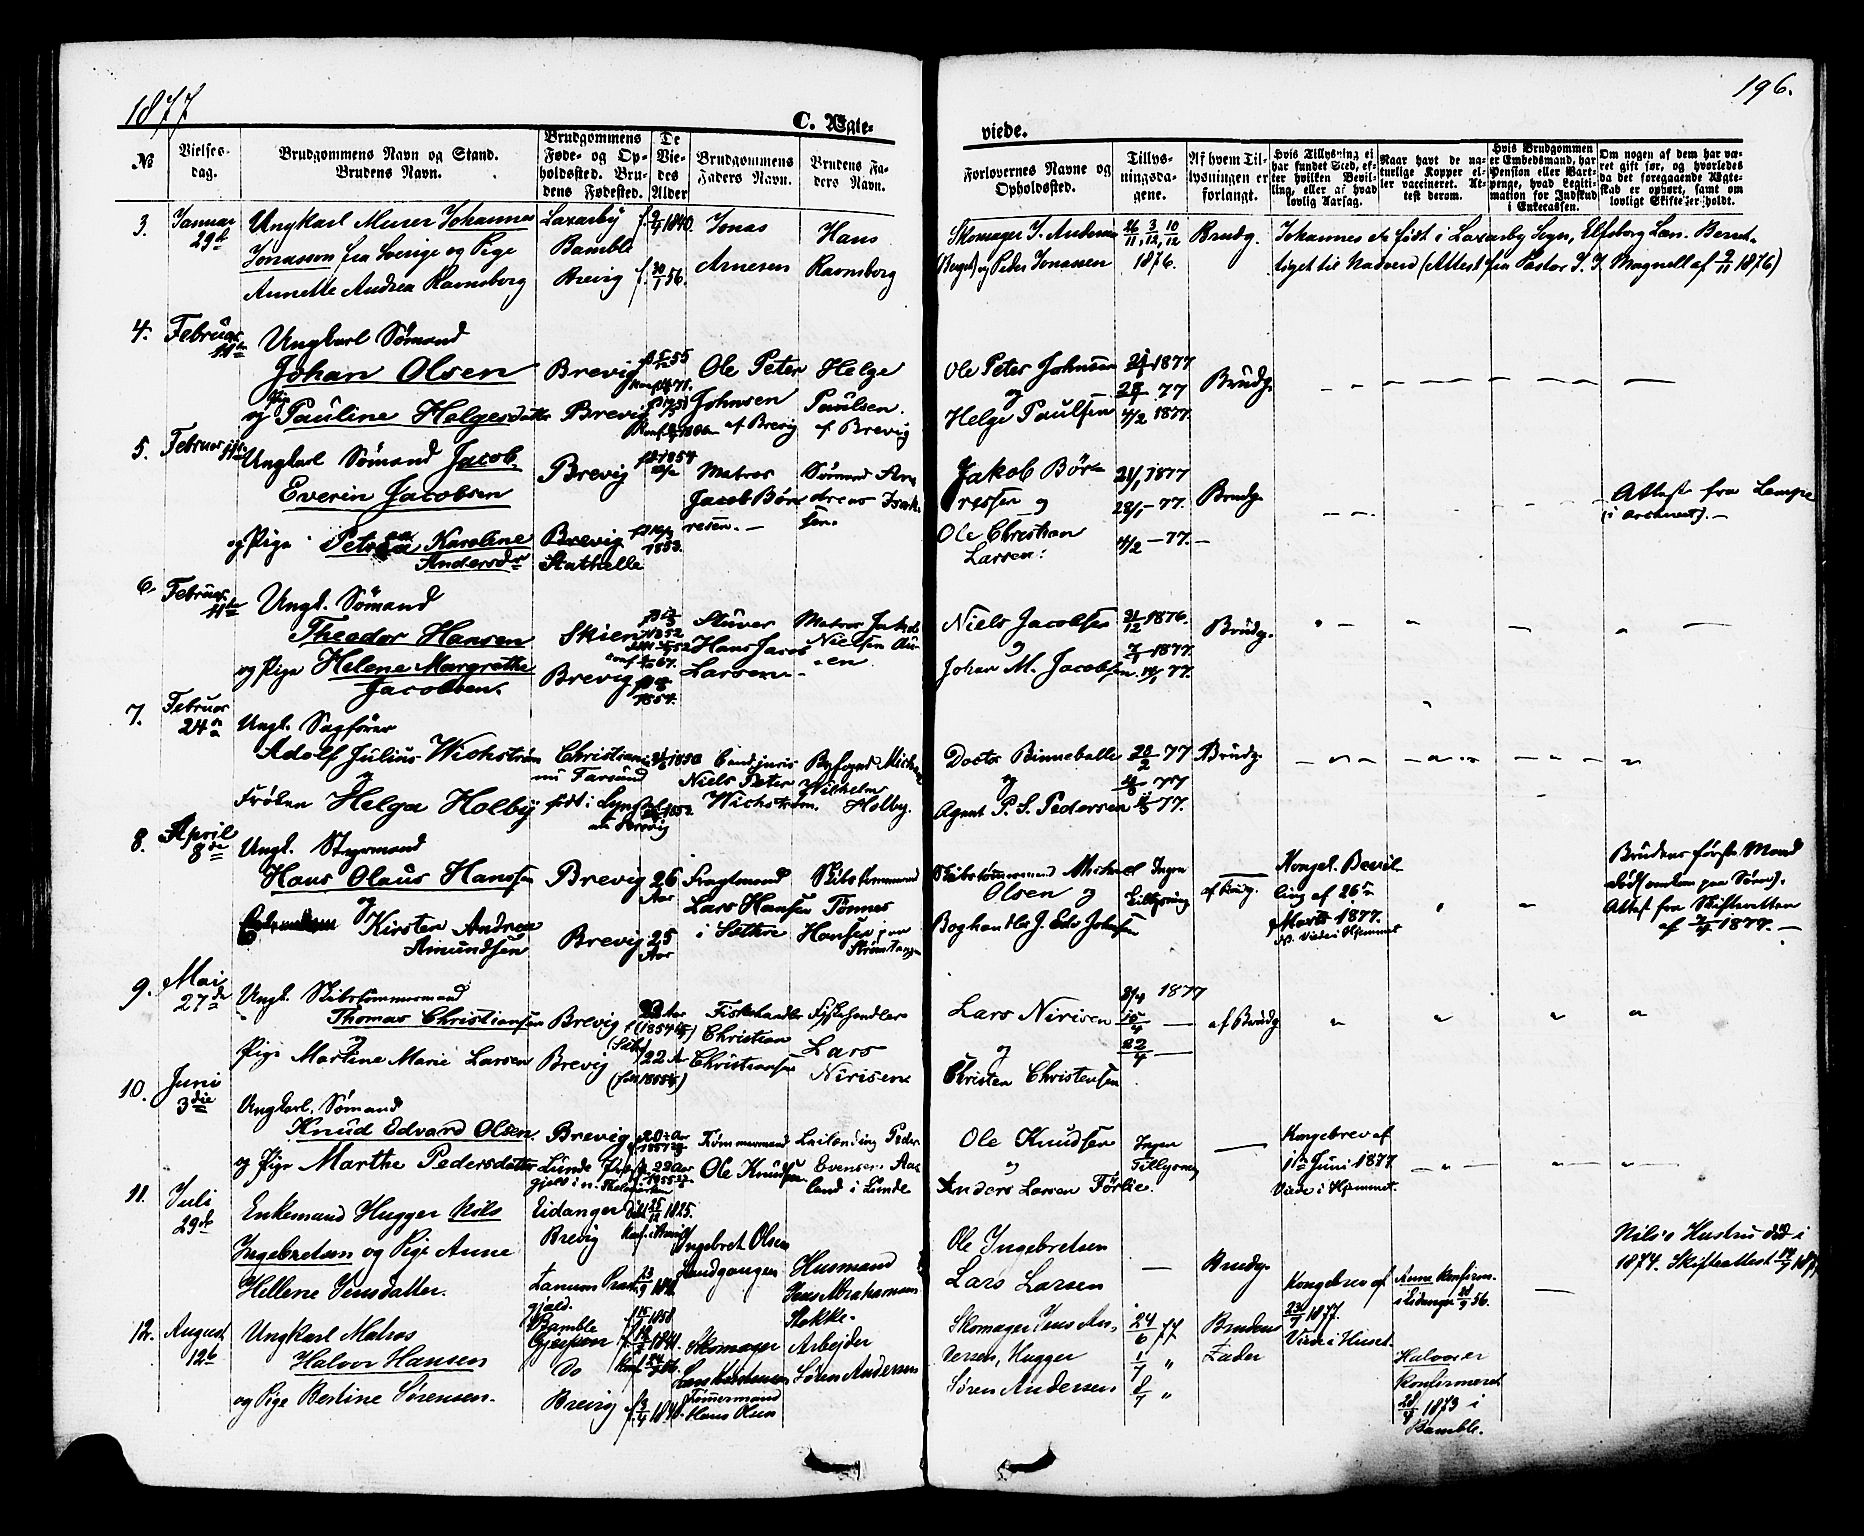 1877
C. Ægte-
viede.
196.
No
Vielses-
dag.
Brudgommens Navn og Stand.
Brudens Navn.
Brudgommens
Føde- og Op-
holdssted. Bru-
dens Fødested.
De
Vie-
des
Alder
Brudgommens
Faders Navn.
Brudens Fa-
ders Navn.
Forlovernes Navne og
Opholdssted.
Tillys-
ningsda-
gene.
Af hvem Til-
lysningen er
forlangt.
Hvis Tillysning ei
har fundet Sted, ef-
ter hvilken Bevil-
ling, eller af hvad
lovlig Aarsag.
Naar havt de na-
turlige Kopper el-
ler vaccineret. At-
test derom.
Hvis Brudgommen
er Embedsmand, har
Pension eller Vart-
penge, hvad Legiti-
mation for Indskud
i Enkecassen.
Om nogen af dem har væ-
ret gift før, og hvorledes
da det foregaaende Ægte-
skab er ophørt, samt om
lovligt Skifte er holdt.
3. Januar
29de
Ungkarl Murer Johannes
Jonasson fra Sverige og Pige
Annette Andrea Ravnsborg
Laxarby
Bamble
Brevig
1840
56.
Jonas
Arnesen
Hans
Ravnsborg
Skomager J. Andersen
og Peder Jonassen
26/11, 3/12, 10/12
1876.
Brudg.
Johannes er født i Laxarby Sogn, Elfsborg Län. Beret-
tiget til Nadverd (Attest fra Pastor J. J. Magnell af 2/11 1876)
4. Februar
11te
Ungkarl Sømand
Johan Olsen
og Pauline Helgesdatter
Brevig
Brevig
Ole Peter
Johnsen
af Brevig
Helge
Paulsen.
af Brevig
Ole Peter Johnsen
og
Helge Paulsen
21/1 1877
28/1 77
4/2 1877.
Brudg.
5. Februar 11te
Ungkarl Sømand Jacob
Everin Jacobsen
og Pige Karoline
Andersdr
Brevig
Brevig
Stathelle
1854
1853.
Matros
Jacob Bør-
resen.
Sømand An-
dreas Isak-
sen.
Jakob Bør-
resen og
Ole Christian
Larsen.
21/1 1877
28/1 - 77.
4/2 - 77.
Brudg.
Attest fra Lampe
(i Archivet).
6. Februar
11te
Ungk. Sømand
Theodor Hansen
og Pige Helene Margrethe
Jacobsen.
Skien
Brevig
1854.
Stuver
Hans Jacob
Larsen.
Matros Jakob
Nielsen
Niels Jacobsen
og
Johan M. Jacobsen.
31/12 1876.
7/1 1877.
14/1 77.
Brudg.
7. Februar
24de
Ungk. Sagfører
Adolf Julius Wichstrøm
og
Frøken Helga Holby
Christiania
nu Farsund
født i Lyngdal
nu Brevig
1850
Cand. juris
Niels Peter
Wichstrøm.
Byfoged Michael
Wilhelm
Holby.
Doctor Binneballe
og
Agent P. S. Pedersen
77
77
77.
Brudg.
8. April
8de
Ungk. Styrmand
Hans Olaus Hansen
og
Kirsten Andrea
Amundsen
Brevig
Brevig
26
Aar
25
Aar
Fragtemand
Lars Hansen
i Sæthre
Skibstømmermand
Tønnes
Hansen paa
Strømtangen
Skibstømmermand Michael
Olsen og
Boghandler J. Eds Johnsen
Ingen
Tillysning
af Brudg.
Kongel. Bevil-
ling af 26de
Marts 1877.
Viede i Hjemmet
Brudens første Mand
død (omkom paa Søen).
Attest fra Skifteretten
af 1877.
9. Mai
27de
Ungk. Skibstømmermand
Thomas Christiansen
og
Pige Martine Marie Larsen
Brevig
Brevig
22 Aar
Fiskehandler
Christian
Christiansen
Fiskehandler
Lars
Nirisen
Lars Nirisen
og
Christen Christensen
8/4 1877
15/4
22/4
af Brudg.
10. Juni
3die
Ungkarl. Sømand
Knud Edvard Olsen
og Pige Marthe Pedersdatter
Brevig
Lunde Præste-
gjeld i n. Thelemarken
Tømmermand
Ole Knudsen
Leilending Peder
Evensen Aas-
land i Lunde
Ole Knudsen
og
Anders Larsen Førlie.
Ingen
Tillysning
Kongebrev af
1ste Juni 1877
Viede i Hjemmet.
11. Juli
29de
Enkemand Hugger Nils
Ingebretsen og Pige Anne
Hellene Jensdatter.
Eidanger
Brevig
1825.
Ingebret Olsen
Sandgangen
Husmand
Jens Abrahamsen
Stokke
Ole Ingebretsen
Lars Larsen
Brudg.
Kongebrev af
1877.
Viede i Huset.
Anne konfirm.
i Eidanger 56.
Nils's Hustru død i
1874. Skifteattest
12. August
12te
Ungkarl Matros
Halvor Hansen
og Pige Bertine Sørensen.
Bamble
Gjerpen
Do
Brevig
Skomager
Tømmermand
Hans Olsen
Arbejder
Søren Andersen
Skomager Jens An-
dersen, Hugger
Søren Andersen
24/6 77
1/7 "
8/7 "
Brudens
Fader
Halvor er
konfirmeret
1873 i
Bamble.